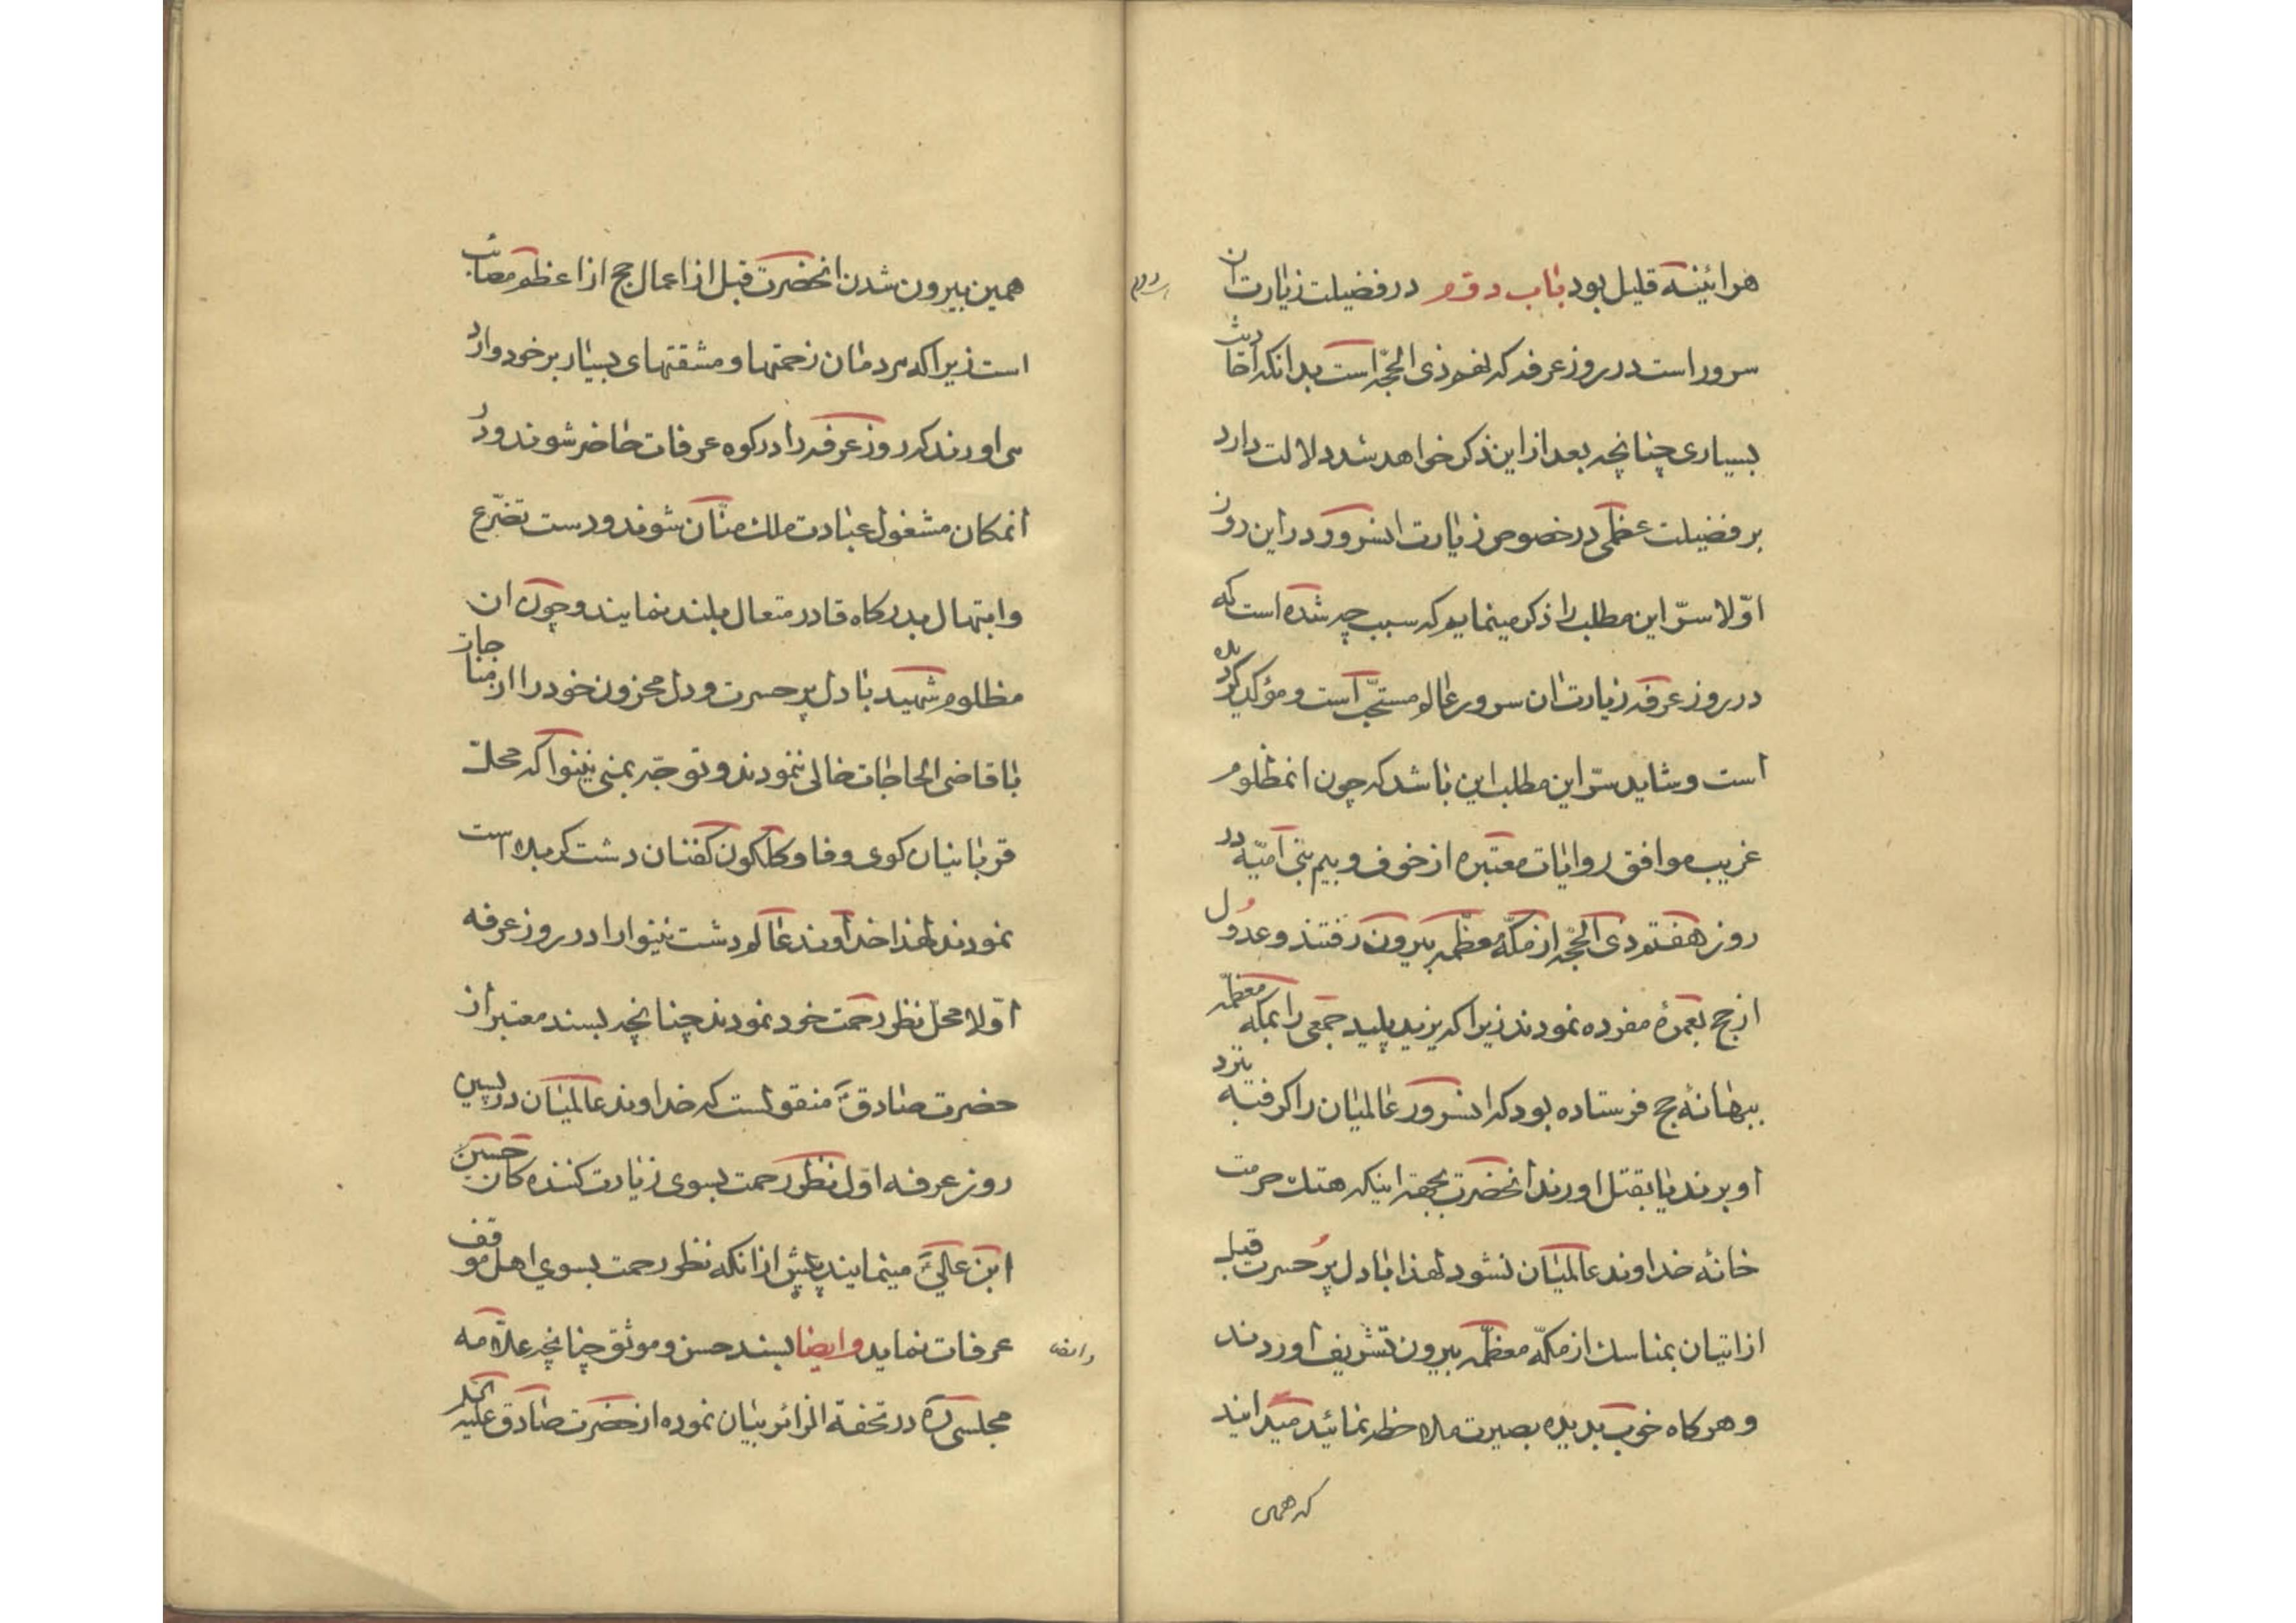 هرائینه قلیل بود باب دوم در فضیلت زیارت ان
سرور است در روز عرفه که نهم ذی الحجّه است بدانکه احادیث
بسیاری چنانچه بعد از این ذکر خواهد شد دلالت دارد
بر فضیلت عظمی در خصوص زیارت انسرور در این روز
اوّلا سرّ این مطلب را ذکر مینمایم که سبب چه شده است که
در روز عرفه زیارت ان سرور عالم مستحبّ است و مؤکد گردیده
است و شاید سرّ این مطلب این باشد که چون انمظلوم
غریب موافق روایات معتبره از خوف و بیم بنی امیّه در
روز هفتم ذی الحجّه از مکّه معظّمه بیرون رفتند و عدول
از حج بعمرۀ مفرده نمودند زیرا که یزید پلید جمعی را بمکه معظمّه
ببهانۀ حج فرستاده بود که انسرور عالمیان را گرفته نزد
او برند یا بقتل اورند انحضرت بجهة اینکه هتک حرمت
خانۀ خداوند عالمیان نشود لهذا با دل پُر حسرت قبل
از اتیان بمناسک از مکّه معظّمه بیرون تشریف اوردند
و هرکاه خوب بدیده بصیرت ملاحظه نمائید میدانید
که همین
دوم
همین بیرون شدن انحضرت قبل از اعمال حج از اعظم مصائب
است زیرا که مردمان زحمتها و مشقتهای بسیار بر خود وارد
می اورند که روز عرفه را در کوه عرفات حاضر شوند و در
انمکان مشغول عبادت ملک منّان شوند و دست تضرّع
و ابتهال بدرکاه قادر متعال بلند نمایند و چون ان
مظلوم شهید با دل پر حسرت و دل محزون خود را از مناجات
با قاضی الحاجات خالی ننمودند و توجّه بمنی نینوا که محلّ
قربانیان کوی وفا و کلکون کفنان دشت کربلا است
نمودند لهذا خداوند عالم دشت نینوا را در روز عرفه
اوّلا محلّ نظر رحمت خود نمودند چنانچه بسند معتبر از
حضرت صادقؑ منقولست که خداوند عالمیان در پسین
روز عرفه اوّل نظر رحمت بسوی زیارت کننده کان حسین
ابن علیؑ مینمایند پیش از انکه نظر رحمت بسوی اهل موقف
عرفات نماید وایضا بسند حسن و موثق چنانچه علاّمه
مجلسی ره در تحفة الزائر بیان نموده از حضرت صادق علیه السلم
وایضا